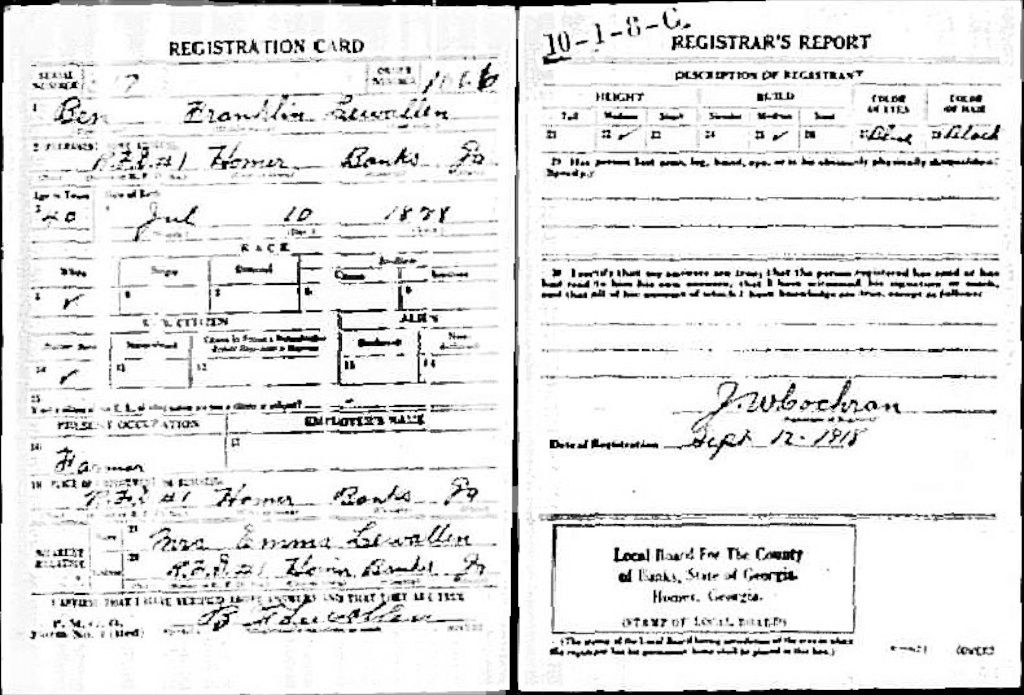 REGISTRATION CARD
SERIAL NUMBER
ORDER NUMBER
1 Ben Franklin Lewallen
2 PERMANENT HOME ADDRESS
R.F.D. #1 Homer Banks Ga
Age in Years Date of Birth
3 40 4 Jul 10 1878
RACE
White Negro Oriental Indian
Citizen Noncitizen
5 ✓ 6 7 8 9
U. S. CITIZEN ALIEN
Native Born Naturalized Citizen by Father's Naturalization Before Registrant's Majority Declarant Non-declarant
10 ✓ 11 12 13 14
15
If not a citizen of the U. S., of what nation are you a citizen or subject?
PRESENT OCCUPATION EMPLOYER'S NAME
16 17
Farmer
18 PLACE OF EMPLOYMENT OR BUSINESS
R.F.D. #1 Homer Banks Ga
NEAREST RELATIVE
Name 19 Mrs Emma Lewallen
Address 20 R.F.D. #1 Homer Banks Ga
I AFFIRM THAT I HAVE VERIFIED ABOVE ANSWERS AND THAT THEY ARE TRUE
P. M. G. O.
Form No. 1 (Red)
B F Lewallen
10-1-8-C.
REGISTRAR'S REPORT
DESCRIPTION OF REGISTRANT
HEIGHT BUILD COLOR OF EYES COLOR OF HAIR
Tall Medium Short Slender Medium Stout
21 22 ✓ 23 24 25 ✓ 26 27 Blue 28 Black
29 Has person lost arm, leg, hand, eye, or is he obviously physically disqualified?
Specify.
30 I certify that my answers are true; that the person registered has read or has
had read to him his own answers; that I have witnessed his signature or mark,
and that all of his answers of which I have knowledge are true, except as follows:
J. W Cochran
Date of Registration Sept 12-1918
Local Board For The County
of Banks, State of Georgia.
Homer, Georgia.
(STAMP OF LOCAL BOARD)
(The stamp of the Local Board having jurisdiction of the area in which
the registrant has his permanent home shall be placed in this box.)
(OVER)